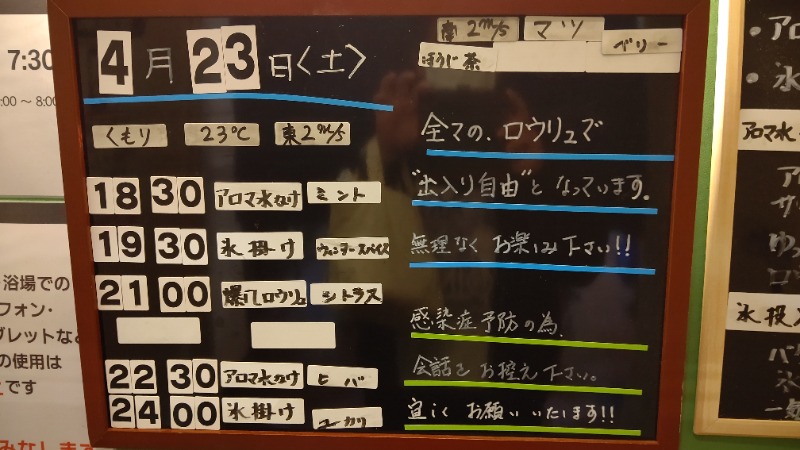 4月23日〈土〉
くもり 23℃ 東2m/s
18 30 アロマ水かけ ミント
19 30 氷掛け ウィンタースパイス
21 00 爆パロウリュ シトラス
22 30 アロマ水かけ ヒバ
24 00 氷掛け ユーカリ
南2m/s マツ ベリー
ほうじ茶
全ての、ロウリュで
"出入り自由"となっています。
無理なくお楽しみ下さい!!
感染症予防の為、
会話をお控え下さい。
宜しくお願いいたします!!
7:30
:00～8:00
浴場での
フォン・
ブレットな
の使用は
です
みなします
・アロ
・氷
アロマ水
ア
サ
ゆっ
ロ
氷投入
バ
氷
一気